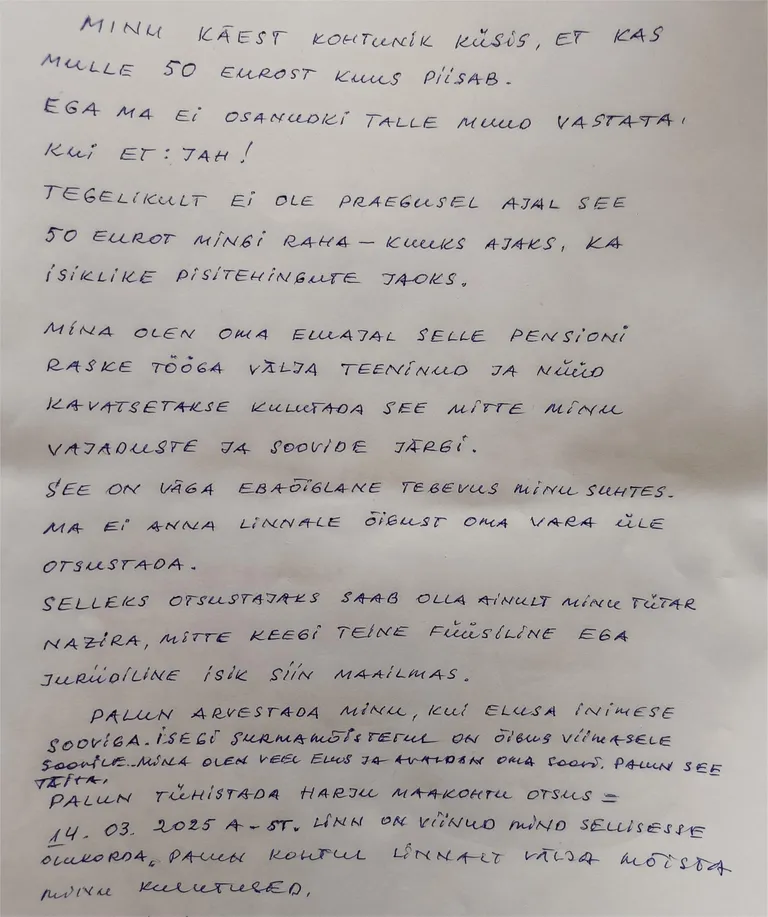 MINU KÄEST KOHTUNIK KÜSIS, ET KAS
MULLE 50 EUROST KUUS PIISAB.
EGA MA EI OSANUDKI TALLE MUUD VASTATA,
KUI ET: JAH!
TEGELIKULT EI OLE PRAEGUSEL AJAL SEE
50 EUROT MINGI RAHA – KUUKS AJAKS, KA
ISIKLIKE PISITEHINGUTE JAOKS.
MINA OLEN OMA ELUAJAL SELLE PENSIONI
RASKE TÖÖGA VÄLJA TEENINUD JA NÜÜD
KAVATSETAKSE KULUTADA SEE MITTE MINU
VAJADUSTE JA SOOVIDE JÄRGI.
SEE ON VÄGA EBAÕIGLANE TEGEVUS MINU SUHTES.
MA EI ANNA LINNALE ÕIGUST OMA VARA ÜLE
OTSUSTADA.
SELLEKS OTSUSTAJAKS SAAB OLLA AINULT MINU TÜTAR
NAZIRA, MITTE KEEGI TEINE FÜÜSILINE EGA
JURIIDILINE ISIK SIIN MAAILMAS.
PALUN ARVESTADA MINU, KUI ELUSA INIMESE
SOOVIGA. ISEGI SURMAMÕISTETUL ON ÕIGUS VIIMASELE
SOOVILE. MINA OLEN VEEL ELUS JA AVALDAN OMA SOOVI. PALUN SEE
TÄITA.
PALUN TÜHISTADA HARJU MAAKOHTU OTSUS =
14. 03. 2025 A-ST. LINN ON VIINUD MIND SELLISESSE
OLUKORDA, PALUN KOHTUL LINNALT VÄLJA MÕISTA
MINU KULUTUSED.